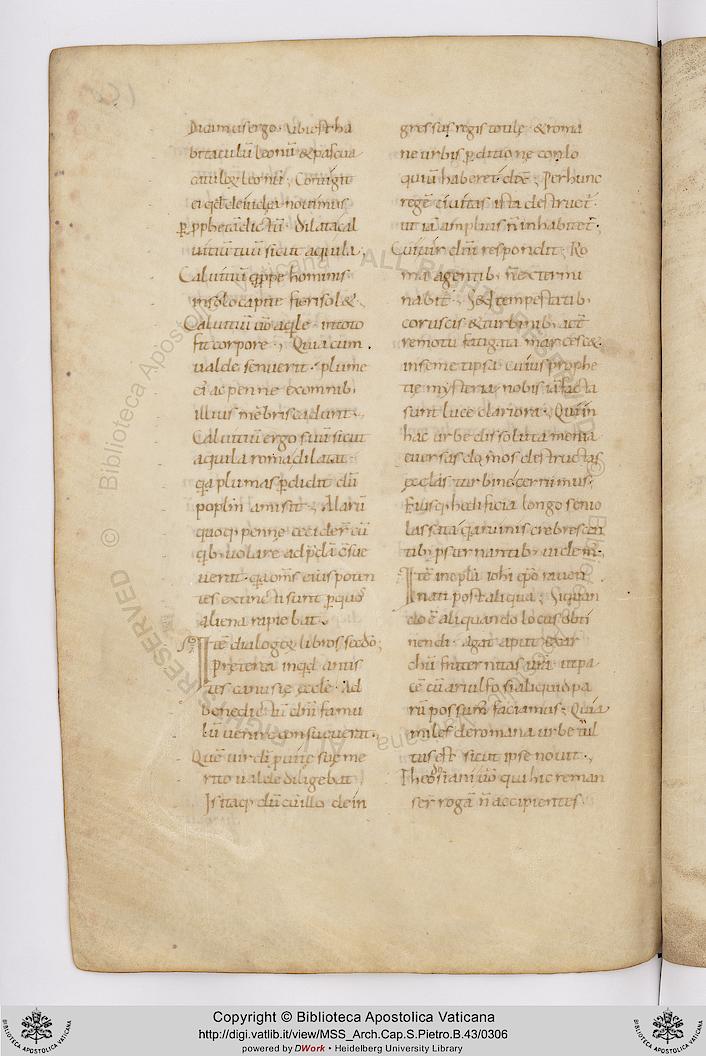 Dicamus ergo. Ubi est ha
bitaculū leonū & pascua
catuloꝝ leonū; Contigit
ei qđ de iudea novimus
ꝑ ꝓphetā dictū. Dilata cal
uitiū tuū sicut aquila.
Caluitiū q̨ppe hominis
in solo capite fieri sol&.
Caluitiū ū aq̨le in toto
fit corpore. Quia cum
ualde senuerit. plume
ei ac penne ex omnib;
illius mēbris cadunt.
Caluitiū ergo suū sicut
aquila roma dilatat.
q̨a plumas ꝑdidit dū
poplm̄ amisit. Alarū
quoq; penne cecider̄ cū
q̨b; uolare ad p̄dā c̄sue
uerat. q̨a om̄s eius poten
tes extincti sunt ꝑ quos
aliena rapiebat.
Itē dialogoꝝ libro scdō;
Preterea inqđ antis
tes canusię ęcclę. Ad
benedictū dn̄i famu
lū uenire consueuerat.
Quē uir dī p uitę suę me
rito ualde diligebat
Is itaq; dū cū illo de in
gressu regis totilę. & roma
nę urbis ꝑditione conlo
quiū haberet. dix̄; Per hunc
regē ciuitas ista destruet̄.
ut iā amplius n̄ inhabitet̄.
Cui uir dn̄i respondit; Ro
ma a gentib; n̄ extermi
nabit̄. Sed tempestatib;
coruscis & turbinib; ac t̄re
remotu fatigata marcesc&
in semetipsa. Cuius prophe
tię mysteria nobis iā facta
sunt luce clariora. Qui in
hac urbe dissoluta menia
euersas domos destructas
ęcclas turbine cernimus.
Eiusq; hedificia longo senio
lassata q̨a ruinis crebrescen
tib; psternantib; uidem;
Itē in ep̄la iohi ep̄o rauen
nati post aliqua; Siquan
do c̄ aliquando locus obti
nendi. agat aput exar
chū fraternitas ur̄a. ut pa
cē cū ariulfo si aliquid pa
rū possum; faciamus; Quia
miles de romana urbe tul
tus est sicut ipse nouit.
Theodosiani ūo qui hic reman
ser̄ rogā n̄ accipientes.
Copyright © Biblioteca Apostolica Vaticana
http://digi.vatlib.it/view/MSS_Arch.Cap.S.Pietro.B.43/0306
powered by DWork • Heidelberg University Library